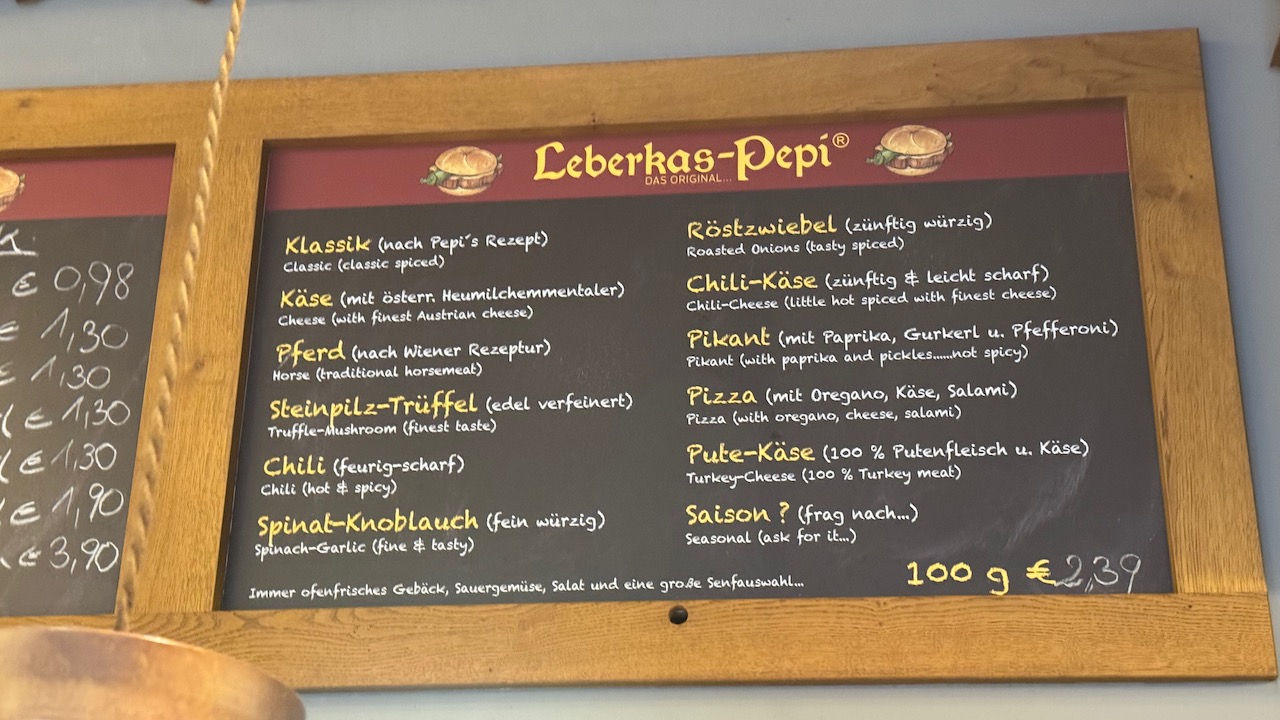 € 0,98
€ 1,30
€ 1,30
€ 1,30
€ 1,30
€ 1,90
€ 3,90
Leberkas-Pepi®
DAS ORIGINAL...
Klassik (nach Pepi´s Rezept)
Classic (classic spiced)
Käse (mit österr. Heumilchemmentaler)
Cheese (with finest Austrian cheese)
Pferd (nach Wiener Rezeptur)
Horse (traditional horsemeat)
Steinpilz-Trüffel (edel verfeinert)
Truffle-Mushroom (finest taste)
Chili (feurig-scharf)
Chili (hot & spicy)
Spinat-Knoblauch (fein würzig)
Spinach-Garlic (fine & tasty)
Röstzwiebel (zünftig würzig)
Roasted Onions (tasty spiced)
Chili-Käse (zünftig & leicht scharf)
Chili-Cheese (little hot spiced with finest cheese)
Pikant (mit Paprika, Gurkerl u. Pfefferoni)
Pikant (with paprika and pickles......not spicy)
Pizza (mit Oregano, Käse, Salami)
Pizza (with oregano, cheese, salami)
Pute-Käse (100 % Putenfleisch u. Käse)
Turkey-Cheese (100 % Turkey meat)
Saison ? (frag nach...)
Seasonal (ask for it...)
100 g € 2,39
Immer ofenfrisches Gebäck, Sauergemüse, Salat und eine große Senfauswahl...